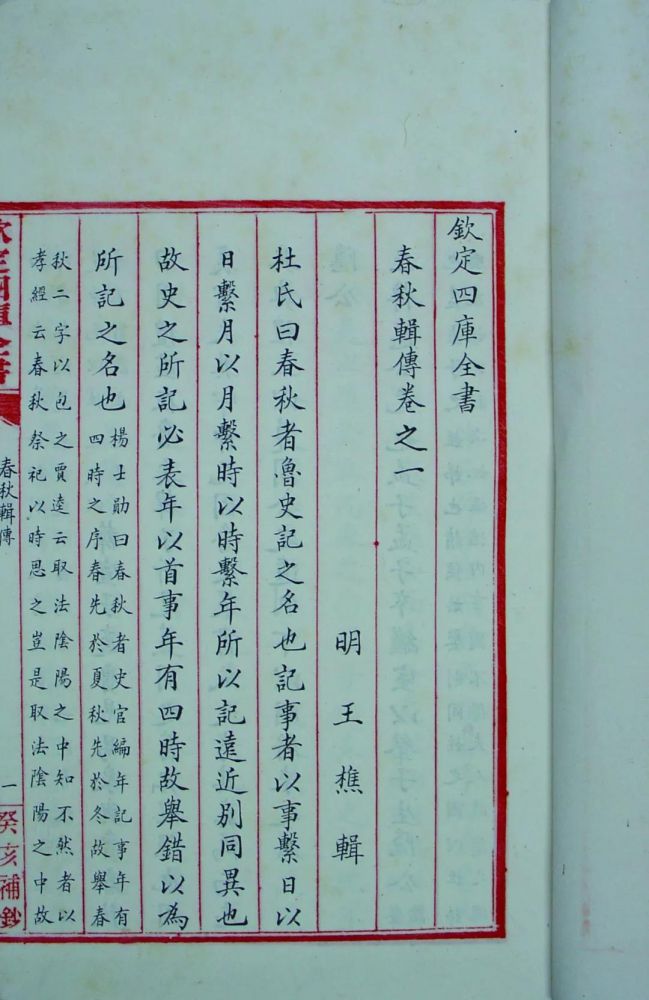 欽定四庫全書
春秋輯傳卷之一
明王樵輯
杜氏曰春秋者魯史記之名也記事者以事繫日以
日繫月以月繫時以時繫年所以記遠近別同異也
故史之所記必表年以首事年有四時故舉錯以為
所記之名也
楊士勛曰春秋者史官編年記事年有
四時之序春先於夏秋先於冬故舉春
秋二字以包之賈逵云取法陰陽之中知不然者以
孝經云春秋祭祀以時思之豈是取法陰陽之中故
欽定四庫全書
春秋輯傳
一
癸亥補鈔